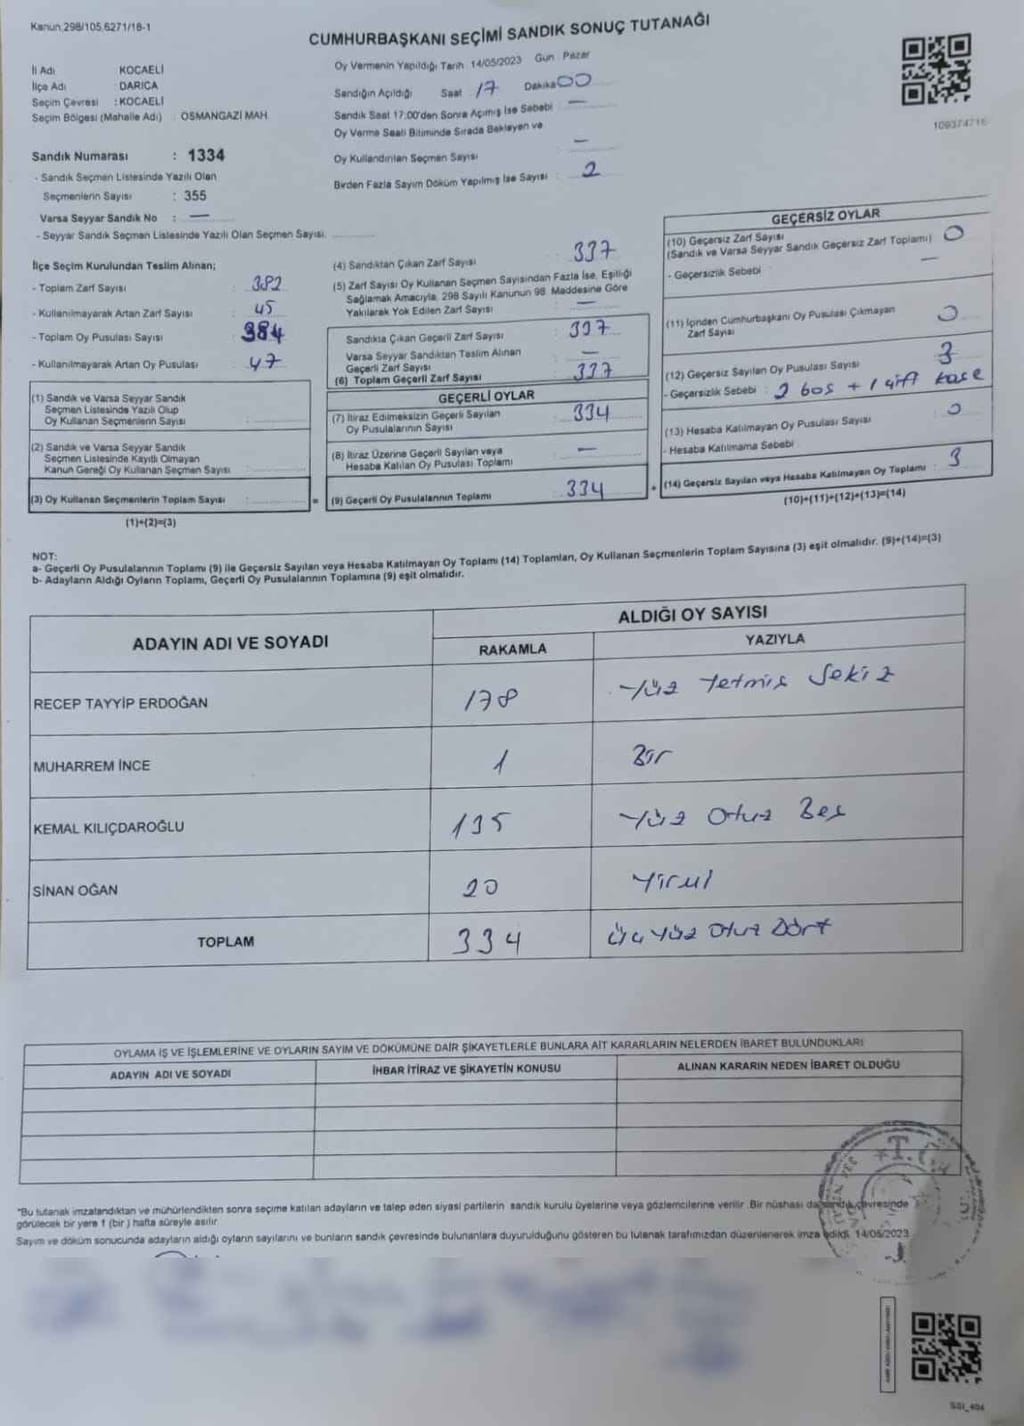 Kanun 298/105,6271/18-1
CUMHURBAŞKANI SEÇİMİ SANDIK SONUÇ TUTANAĞI
İl Adı KOCAELİ
İlçe Adı : DARICA
Seçim Çevresi : KOCAELİ
Seçim Bölgesi (Mahalle Adı) OSMANGAZİ MAH
Sandık Numarası : 1334
- Sandık Seçmen Listesinde Yazılı Olan
Seçmenlerin Sayısı : 355
Varsa Seyyar Sandık No : —
- Seyyar Sandık Seçmen Listesinde Yazılı Olan Seçmen Sayısı
Oy Vermenin Yapıldığı Tarih 14/05/2023 Gün Pazar
Sandığın Açıldığı Saat 17 Dakika 00
Sandık Saat 17:00'den Sonra Açılmış İse Sebebi —
Oy Verme Saati Bitiminde Sırada Bekleyen ve
Oy Kullandırılan Seçmen Sayısı —
Birden Fazla Sayım Döküm Yapılmış İse Sayısı 2
109374716
İlçe Seçim Kurulundan Teslim Alınan;
- Toplam Zarf Sayısı 382
- Kullanılmayarak Artan Zarf Sayısı 45
- Toplam Oy Pusulası Sayısı 384
- Kullanılmayarak Artan Oy Pusulası 47
(1) Sandık ve Varsa Seyyar Sandık
Seçmen Listesinde Yazılı Olup
Oy Kullanan Seçmenlerin Sayısı
(2) Sandık ve Varsa Seyyar Sandık
Seçmen Listesinde Kayıtlı Olmayan
Kanun Gereği Oy Kullanan Seçmen Sayısı
(3) Oy Kullanan Seçmenlerin Toplam Sayısı =
(1)+(2)=(3)
(4) Sandıktan Çıkan Zarf Sayısı 337
(5) Zarf Sayısı Oy Kullanan Seçmen Sayısından Fazla İse, Eşitliği
Sağlamak Amacıyla, 298 Sayılı Kanunun 98. Maddesine Göre
Yakılarak Yok Edilen Zarf Sayısı —
Sandıkta Çıkan Geçerli Zarf Sayısı 337
Varsa Seyyar Sandıktan Teslim Alınan
Geçerli Zarf Sayısı —
(6) Toplam Geçerli Zarf Sayısı 337
GEÇERLİ OYLAR
(7) İtiraz Edilmeksizin Geçerli Sayılan
Oy Pusulalarının Sayısı 334
(8) İtiraz Üzerine Geçerli Sayılan veya
Hesaba Katılan Oy Pusulası Toplamı —
(9) Geçerli Oy Pusulalarının Toplamı 334 +
GEÇERSİZ OYLAR
(10) Geçersiz Zarf Sayısı
(Sandık ve Varsa Seyyar Sandık Geçersiz Zarf Toplamı) 0
- Geçersizlik Sebebi —
(11) İçinden Cumhurbaşkanı Oy Pusulası Çıkmayan
Zarf Sayısı 0
(12) Geçersiz Sayılan Oy Pusulası Sayısı 3
- Geçersizlik Sebebi : 2 boş + 1 çift kaşe
(13) Hesaba Katılmayan Oy Pusulası Sayısı 0
- Hesaba Katılmama Sebebi
(14) Geçersiz Sayılan veya Hesaba Katılmayan Oy Toplamı 3
(10)+(11)+(12)+(13)=(14)
NOT:
a- Geçerli Oy Pusulalarının Toplamı (9) ile Geçersiz Sayılan veya Hesaba Katılmayan Oy Toplamı (14) Toplamları, Oy Kullanan Seçmenlerin Toplam Sayısına (3) eşit olmalıdır. (9)+(14)=(3)
b- Adayların Aldığı Oyların Toplamı, Geçerli Oy Pusulalarının Toplamına (9) eşit olmalıdır.
ADAYIN ADI VE SOYADI
ALDIĞI OY SAYISI
RAKAMLA YAZIYLA
RECEP TAYYİP ERDOĞAN 178 Yüz Yetmiş Sekiz
MUHARREM İNCE 1 Bir
KEMAL KILIÇDAROĞLU 135 Yüz Otuz Beş
SİNAN OĞAN 20 Yirmi
TOPLAM 334 Üç Yüz Otuz Dört
OYLAMA İŞ VE İŞLEMLERİNE VE OYLARIN SAYIM VE DÖKÜMÜNE DAİR ŞİKAYETLERLE BUNLARA AİT KARARLARIN NELERDEN İBARET BULUNDUKLARI
ADAYIN ADI VE SOYADI İHBAR İTİRAZ VE ŞİKAYETİN KONUSU ALINAN KARARIN NEDEN İBARET OLDUĞU
*Bu tutanak imzalandıktan ve mühürlendikten sonra seçime katılan adayların ve talep eden siyasi partilerin sandık kurulu üyelerine veya gözlemcilerine verilir. Bir nüshası da sandık çevresinde
görülecek bir yere 1 (bir) hafta süreyle asılır.
Sayım ve döküm sonucunda adayların aldığı oyların sayılarını ve bunların sandık çevresinde bulunanlara duyurulduğunu gösteren bu tutanak tarafımızdan düzenlenerek imza edildi. 14/05/2023
T.C.
SSI_404